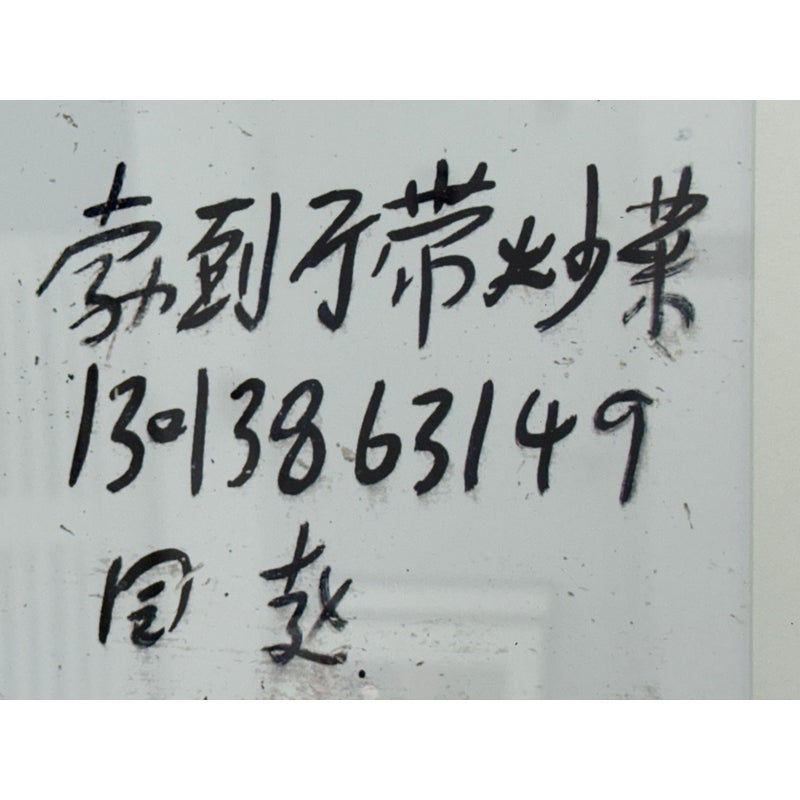 勃到于带炒菜
13013863149
国赵